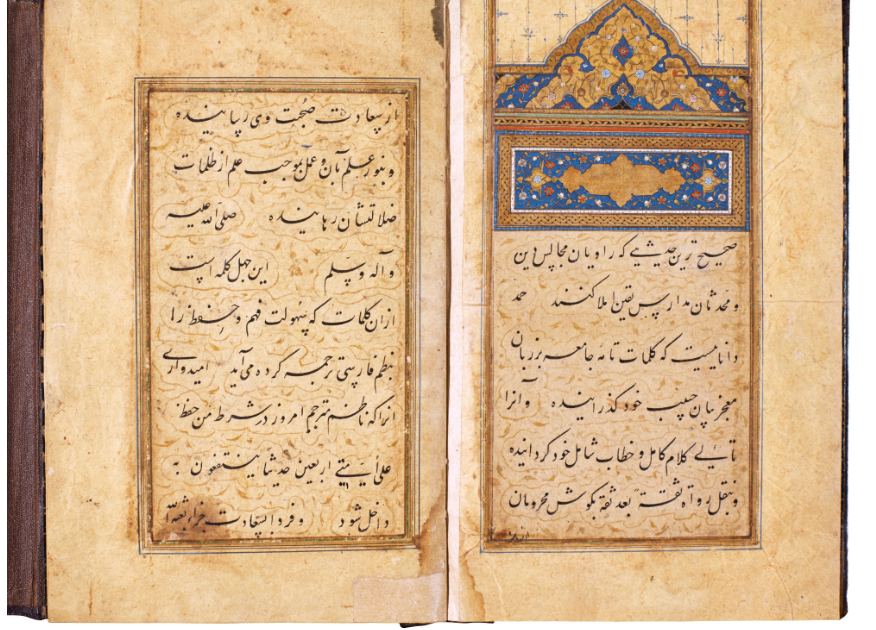 صحیح ترین حدیثی که راویان مجالس دین
و محدثان مدارس یقین املا کنند حمد
داناییست که کلمات تامه جامعه بر زبان
معجز بیان حبیب خود گذرانیده و آنرا
تالی کلام کامل و خطاب شامل خود گردانیده
و بنقل رواة ثقة بعد ثقة بگوش محرومان
از سعادت صحبت وی رسانیده
و بنور علم بآن و عمل بموجب علم از ظلمات
ضلالتشان رهانیده صلی الله علیه
و آله وسلم این چهل کلمه است
ازان کلمات که سهولت فهم و حفظ را
بنظم فارسی ترجمه کرده می آید امیدواری
انرا که ناظم مترجم امروز در شرط من حفظ
علی أمتی اربعین حدیثا ینتفعون به
داخل شود و فردا بسعادت جزاء بعثه الله